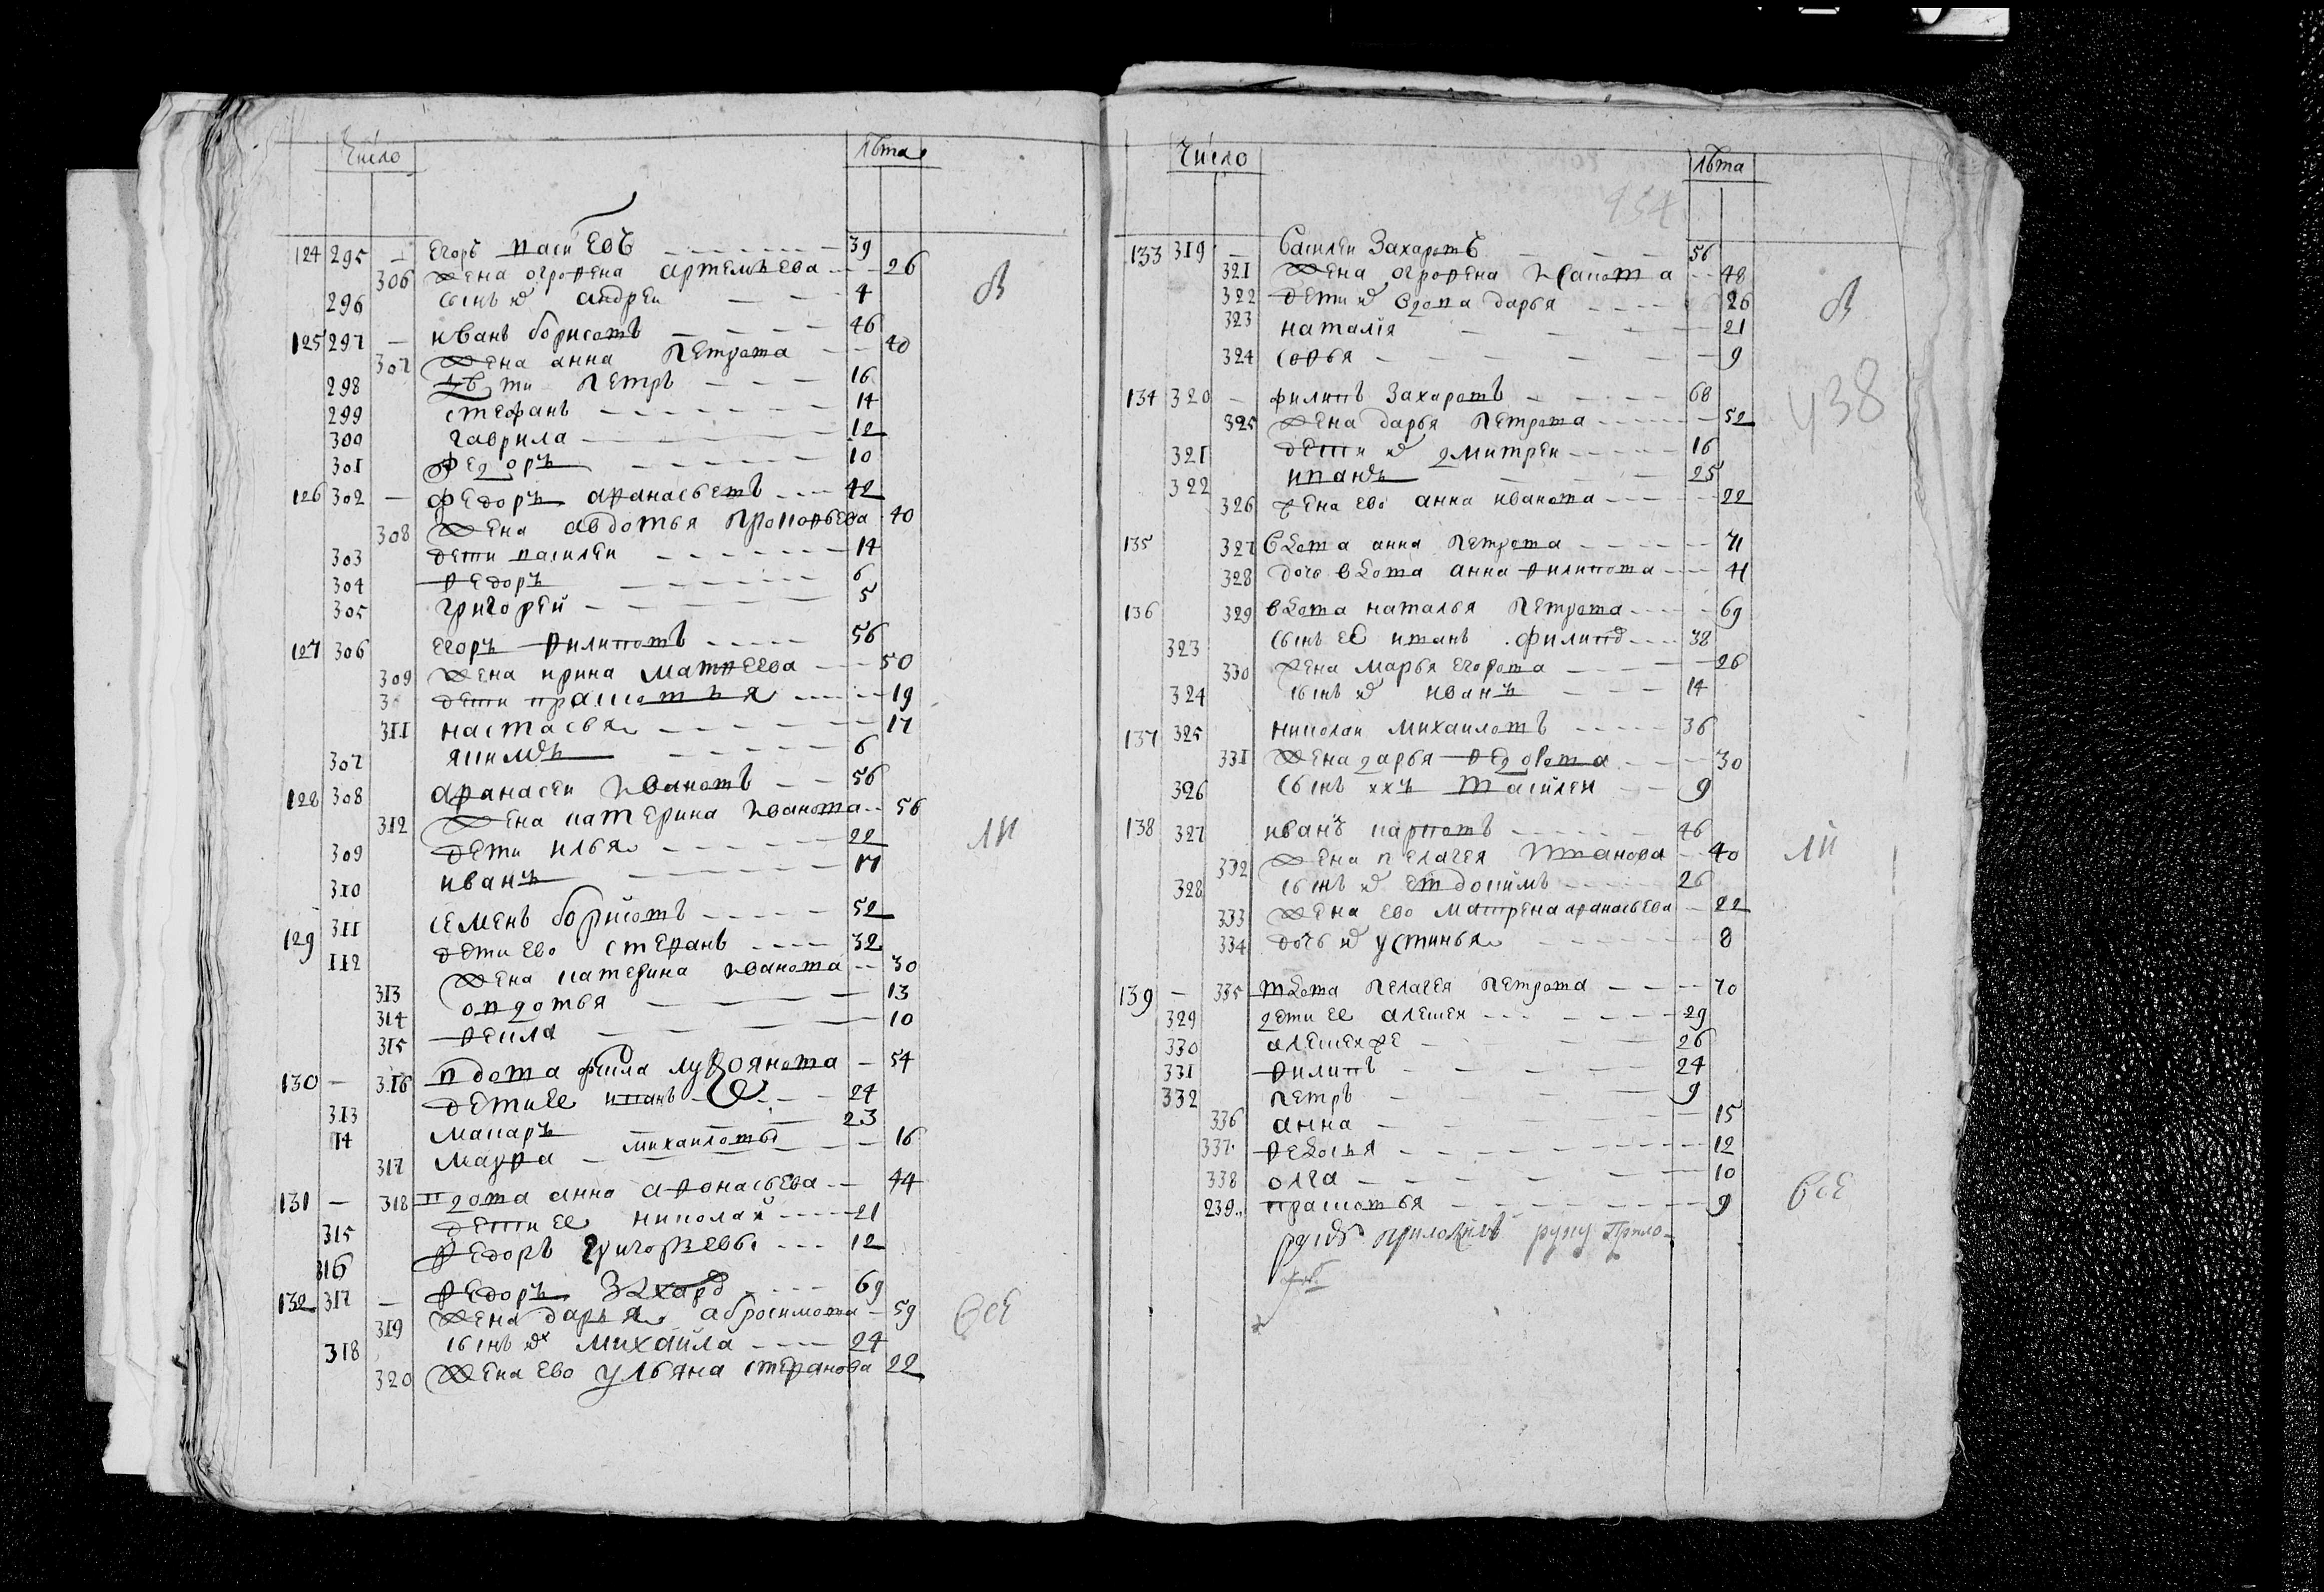 Число лѣта
124 295 — Егоръ васиlевъ 39
306 жена огрофена артемьева 26
296 сынъ их андреи 4
125 297 — иванъ борисовъ 46
307 жена анна петрова 40
298 дѣти петръ 16
299 стефанъ 14
300 гаврила 12
301 федоръ 10
126 302 — федоръ афанасьевъ 42
308 жена авдотья прокофьева 40
303 дети василеи 14
304 федоръ 6
305 григореи 5
127 306 егоръ филиповъ 56
309 жена ирина матфеева 50
3 дети прасковья 19
311 настасья 17
307 якимъ 6
128 308 афанасеи ивановъ 56
312 жена катерина иванова 56
309 дети илья 22
310 иванъ 17
129 311 семенъ борисовъ 52
112 дети ево стефанъ 32
313 жена катерина иванова 30
314 овдотья 13
315 фекла 10
130 — 316 вдова фекла лукоянова 54
313 дети ее иванъ 24
14 макаръ михаиловы 23
317 мавра 16
131 — 318 вдова анна афонасьева 44
315 дети ее николаи 21
316 федоръ григорьевы 12
132 317 — федоръ захаров 69
319 жена дарья абросимова 59
318 сынъ их михаила 24
320 жена ево ульяна стефанова 22
В
ли
все
Число лѣта
454
133 319 — Василеи Захаровъ 56
321 жена огрофена иванова 48
322 дети их вдова дарья 26
323 наталія 21
324 софья 9
134 320 — филипъ Захаровъ 68
325 жена дарья петрова 52
321 дети их дмитреи 16
322 иванъ 25
326 жена ево анна иванова 22
135 327 вдова анна петрова 71
328 дочь вдова анна филипова 41
136 329 вдова наталья петрова 69
323 сынъ ее иванъ филипов 38
330 жена марья егорова 26
324 сынъ их иванъ 14
137 325 николаи михаиловъ 36
331 жена дарья федорова 30
326 сынъ ихъ василеи 9
138 327 иванъ карповъ 46
332 жена пелагея иванова 40
328 сынъ их евдокимъ 26
333 жена ево матрена афанасьева 22
334 дочь их устинья 8
139 — 335 вдова пелагея петрова 70
329 дети ее алексеи 29
330 алексеи же 26
331 филипъ 24
332 петръ 9
336 анна 15
337 федосья 12
338 олга 10
239 прасковья 9
В
438
ли
все